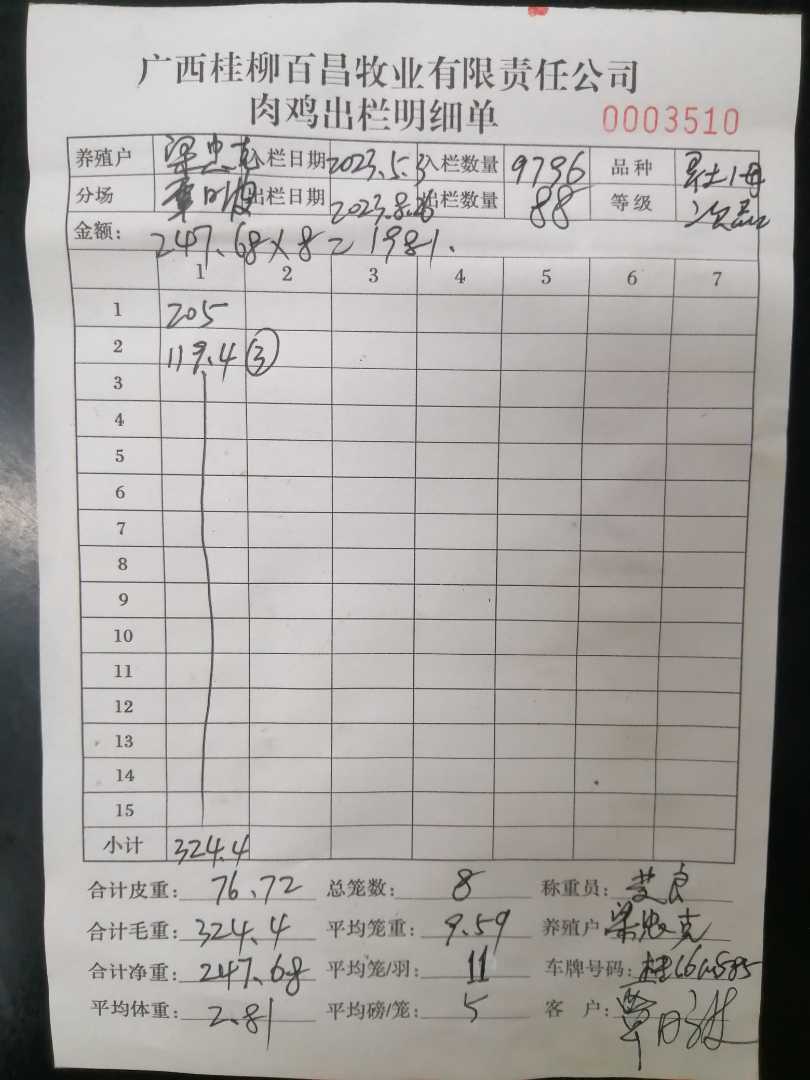 广西桂柳百昌牧业有限责任公司
肉鸡出栏明细单 0003510
养殖户 梁忠克 入栏日期 2023.5.3 入栏数量 9796 品种
分场 出栏日期 2023.8. 出栏数量 88 等级 次品
金额: 247.68×8=1981.
1 2 3 4 5 6 7
1 205
2 119.4 ③
3
4
5
6
7
8
9
10
11
12
13
14
15
小计 324.4
合计皮重: 76.72 总笼数: 8 称重员:
合计毛重: 324.4 平均笼重: 9.59 养殖户 梁忠克
合计净重: 247.68 平均笼/羽: 11 车牌号码:
平均体重: 2.81 平均磅/笼: 5 客 户: